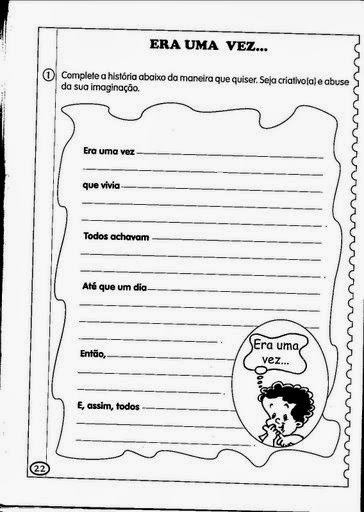 ERA UMA VEZ...
1 Complete a história abaixo da maneira que quiser. Seja criativo(a) e abuse
da sua imaginação.
Era uma vez
que vivia
Todos achavam
Até que um dia
Então,
E, assim, todos
Era uma
vez...
22